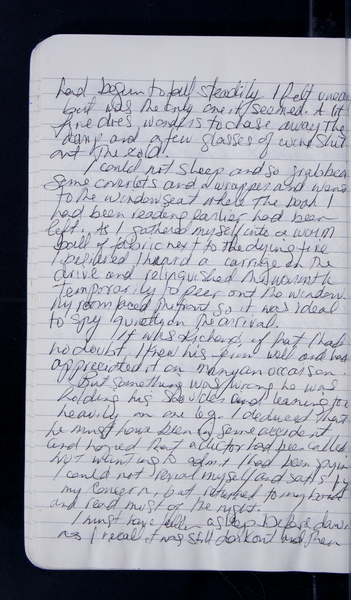 had begun to fall steadily I felt uneasy
but was the only one it seemed. A lit
fire does wonders to chase away the
damp and a few glasses of wine shut
out the cold.
I could not sleep and so grabbed
some coverlets and a wrapper and went
to the window seat where the book I
had been reading earlier had been
left. As I gathered myself into a warm
ball of fabric next to the dying fire
I believed I heard a carriage on the
drive and relinquished the warmth
temporarily to peer out the window.
My room faced the front so it was ideal
to spy quietly on the arrival.
It was, of that I had
no doubt, I knew his form well and had
appreciated it on many an occasion.
But something was wrong he was
holding his shoulder and leaning too
heavily on one leg. I deduced that
he must have been in some accident
and hoped that a doctor had been called.
Not wanting to admit I had been spying
I could not reveal myself and satisfy
my concern, but returned to my book
and read most of the night.
I must have fallen asleep before dawn
as I recall it was still dark out and then